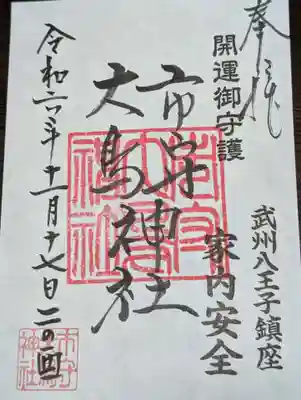 奉拝
開運御守護
武州八王子鎮座
家内安全
市守
大鳥神社
市守
大鳥
神社
令和六年十一月十七日 二の酉